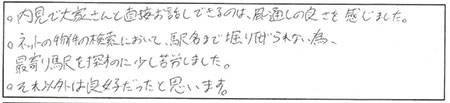 ○内見で大家さんと直接お話しできるのは、風通しの良さを感じました。
○ネットの物件の検索において、駅名まで掘り下げられない為、
最寄り駅を探すのに少し苦労しました。
○それ以外は良好だったと思います。